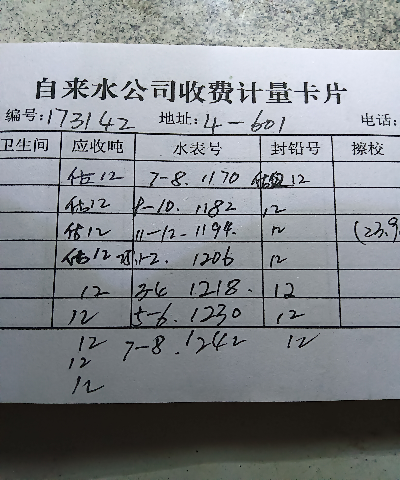 自来水公司收费计量卡片
编号:173142 地址:4-601 电话:
卫生间 应收吨 水表号 封铅号 擦校
估12 7-8. 1170 估12
估12 9-10. 1182 12
估12 11-12. 1194. 12 (23.9
估12 1-2. 1206 12
12 3-4 1218. 12
12 5-6. 1230 12
12 7-8. 1242 12
12
12